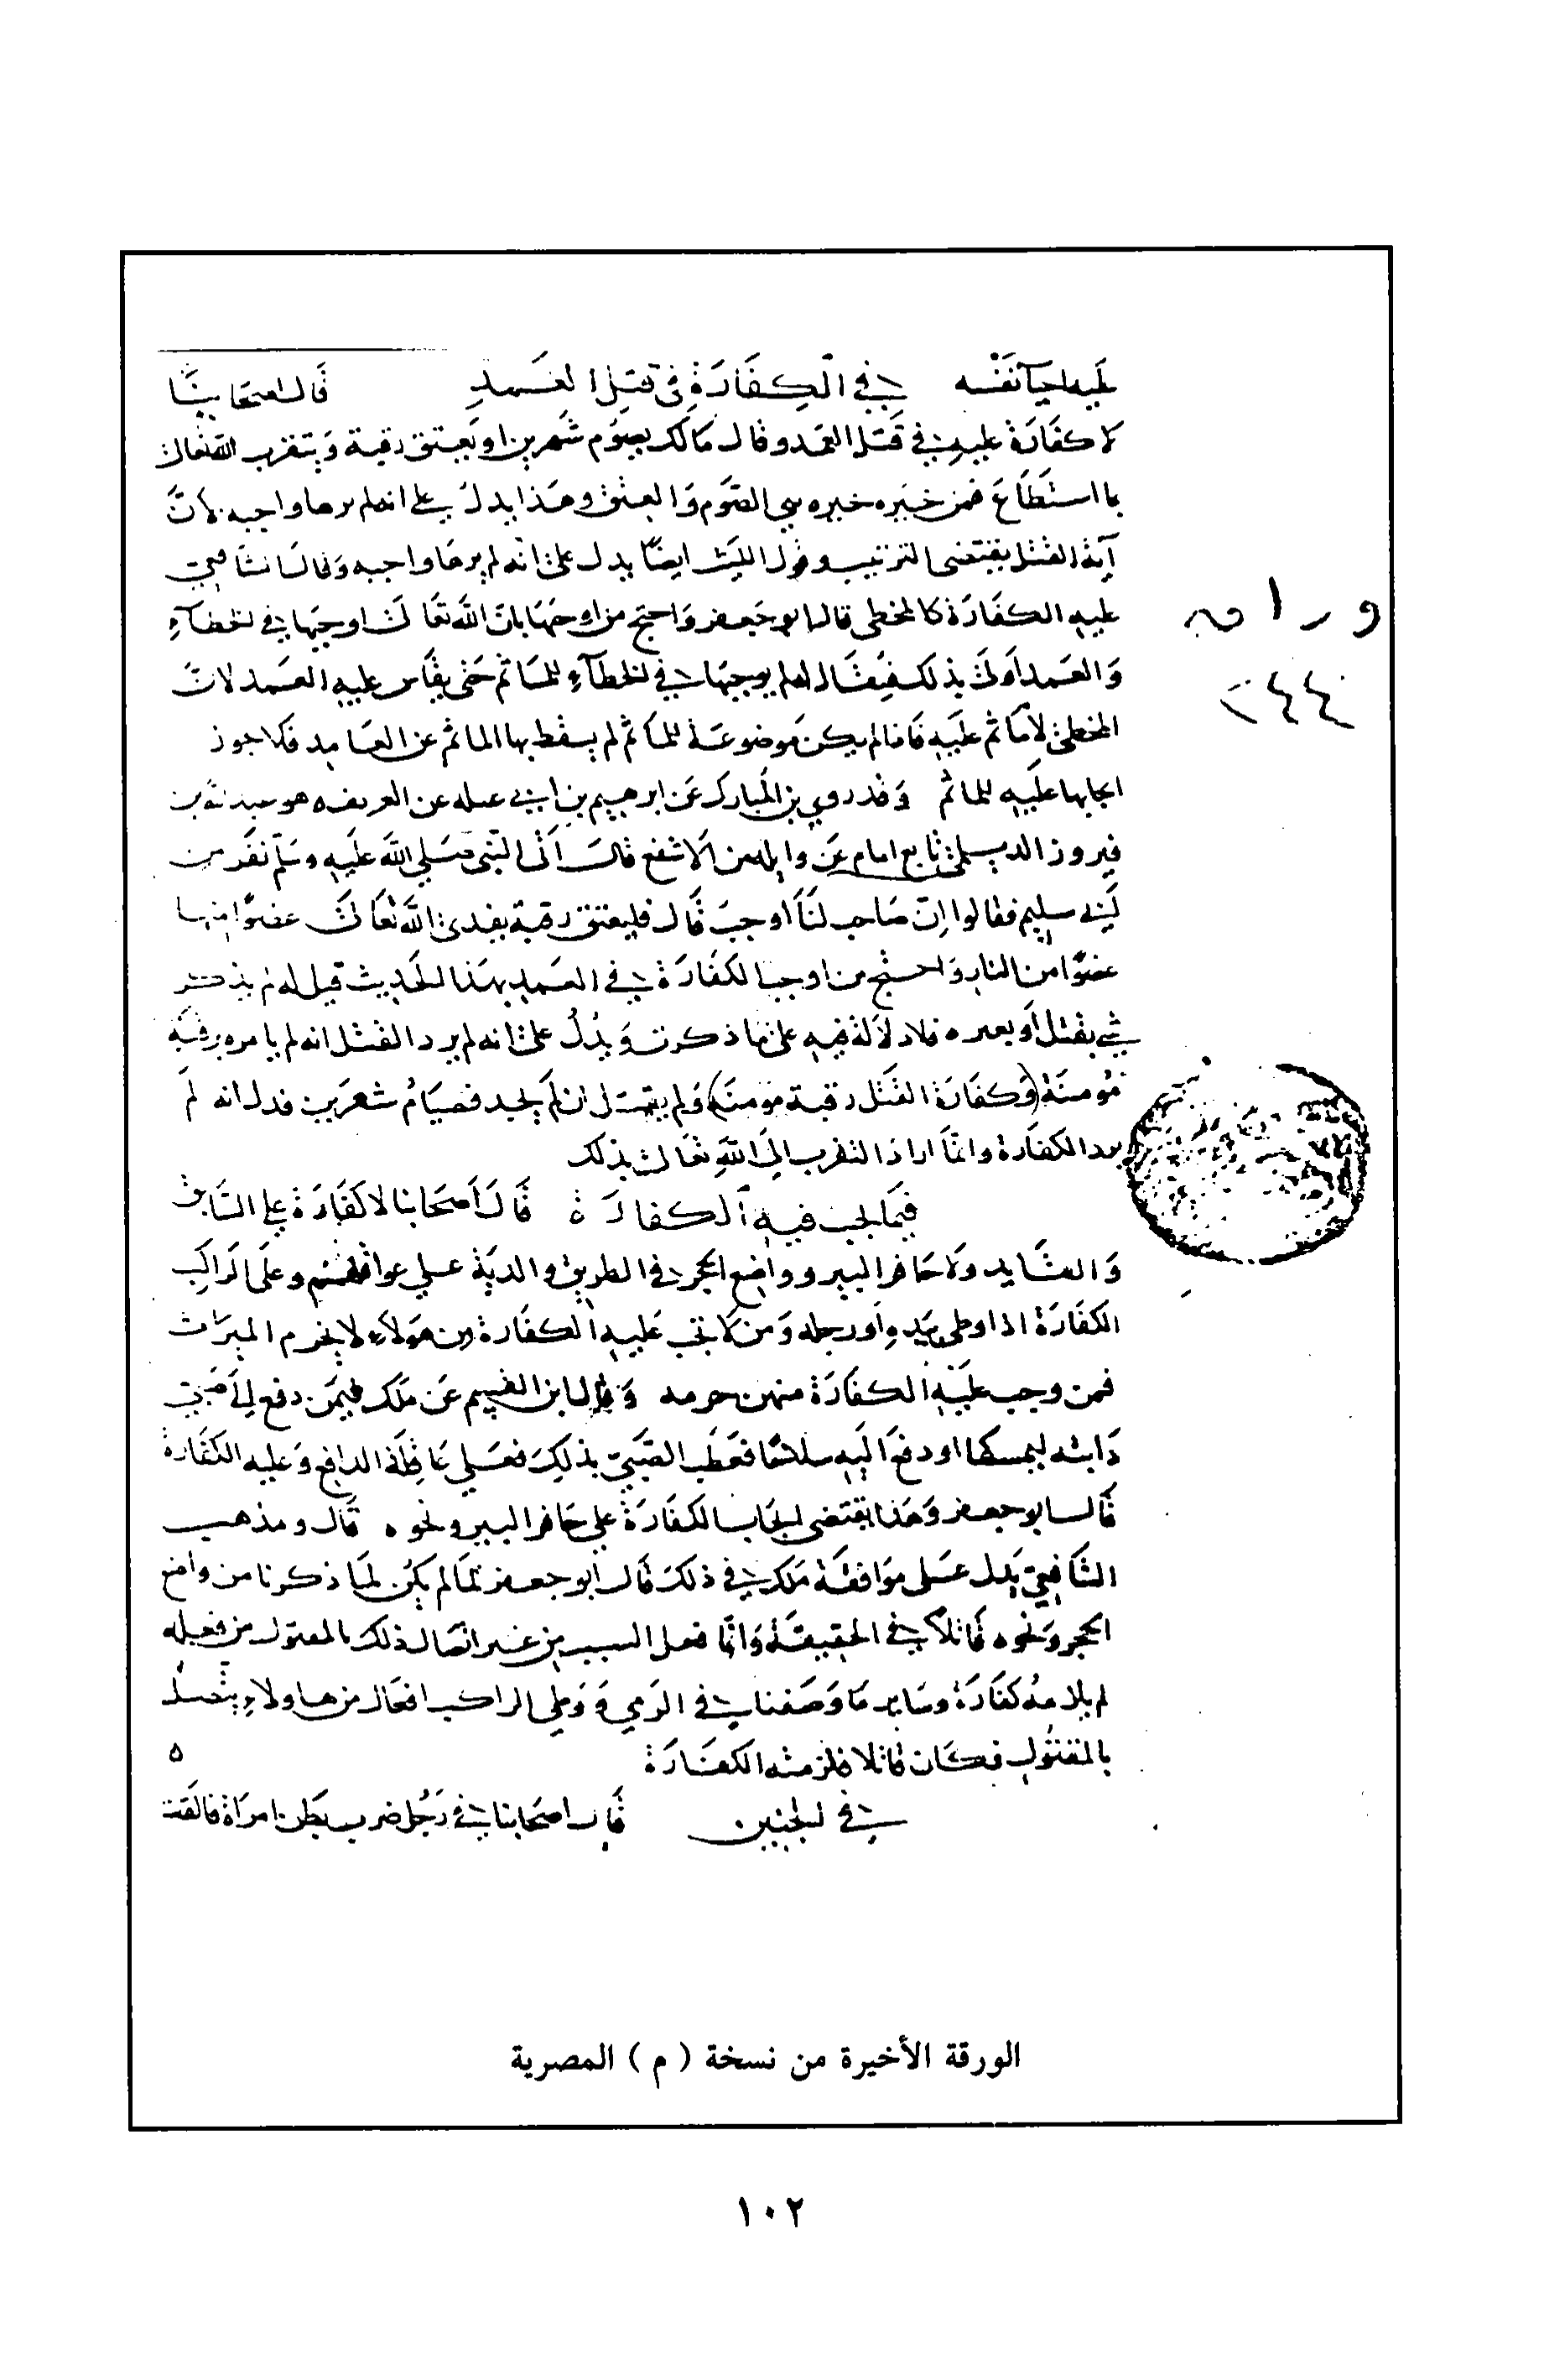 عليه إحيا نفسه في الكفارة في قتل العمد قال اصحابنا
لا كفارة عليه في قتل العمد وقال مالك يصوم شهرين او يعتق رقبة ويتقرب الى الله تعالى
بما استطاع فمن خيره خيره بين الصوم والعتق وهذا يدل على انه لم يرها واجبه لان
آية القتل يقتضى الترتيب وقول الليث ايضا يدل على انه لم يرها واجبه وقال الشافعي
عليه الكفارة كالمخطى قال ابو جعفر واحتج من اوجبها بان الله تعالى اوجبها في الخطاء
والعمد اولى بذلك فيقال له لم يوجبها في الخطاء للماثم حتى يقاس عليه العمد لان
المخطئ لا ماثم عليه فاذا لم يكن موضوعة للماثم لم يسقط بها الماثم عن العامد فلا جوز
ايجابها عليه للماثم وقد روى بن المبارك عن ابرهيم بن ابي عبله عن الغريف هو عبد الله بن
فيروز الديلمي تابع امام عن واثله بن الاسقع قال أتى النبي صلى الله عليه وسلم نفر من
بني سليم فقالوا إن صاحب لنا اوجب قال فليعتق رقبة يفدى الله تعالى عضوا منها
عضوا من النار واحتج من اوجب الكفارة في العمد بهذا الحديث قيل له لم يذكر
شي بقتل أو بغيره فلا دلالة فيه على ما ذكرت ويدل على انه لم يرد القتل انه لم يامره برقبة
مؤمنة (وكفارة القتل رقبة مومنة) ولم يقل ان لم يجد فصيام شهرين فدل انه لم
يرد الكفارة وانما اراد التقرب الى الله تعالى بذلك
فيما يجب فيه الكفارة قال اصحابنا لا كفارة على السايق
والقايد ولا حافر البير وواضع الحجر في الطريق والدية على عواقلهم وعلى الراكب
الكفارة اذا وطى بيد أو رجله ومن لا تجب عليه الكفارة من هولاء لا يحرم الميراث
فمن وجب عليه الكفارة منهن حرمه وقال ابن القسيم عن ملك فيمن دفع الى صبي
دابته ليمسكها او دفع اليه سلاحا فعطب الصبي بذلك فعلى عاقلة الدافع وعليه الكفارة
قال ابو جعفر وهذا يقتضى ايجاب الكفارة على حافر البير ونحوه قال ومذهب
الشافعي يدل على موافقة ملك في ذلك قال أبو جعفر لما لم يكن لما ذكرنا من واضع
الحجر ونحوه قاتلا في الحقيقة وانما فعل السبب من غير اتصال ذلك بالمقتول من فعله
لم يلزمه كفارة وساير ما وصفنا في الرمي ووطي الراكب افعال من هاولاء يتصل
بالمقتول فكان قاتلا فلزمته الكفارة ٥
في الجنين قال اصحابنا في رجل ضرب بطن امراة فالقت
٢٤٤
الورقة الأخيرة من نسخة ( م ) المصرية
١٠٢